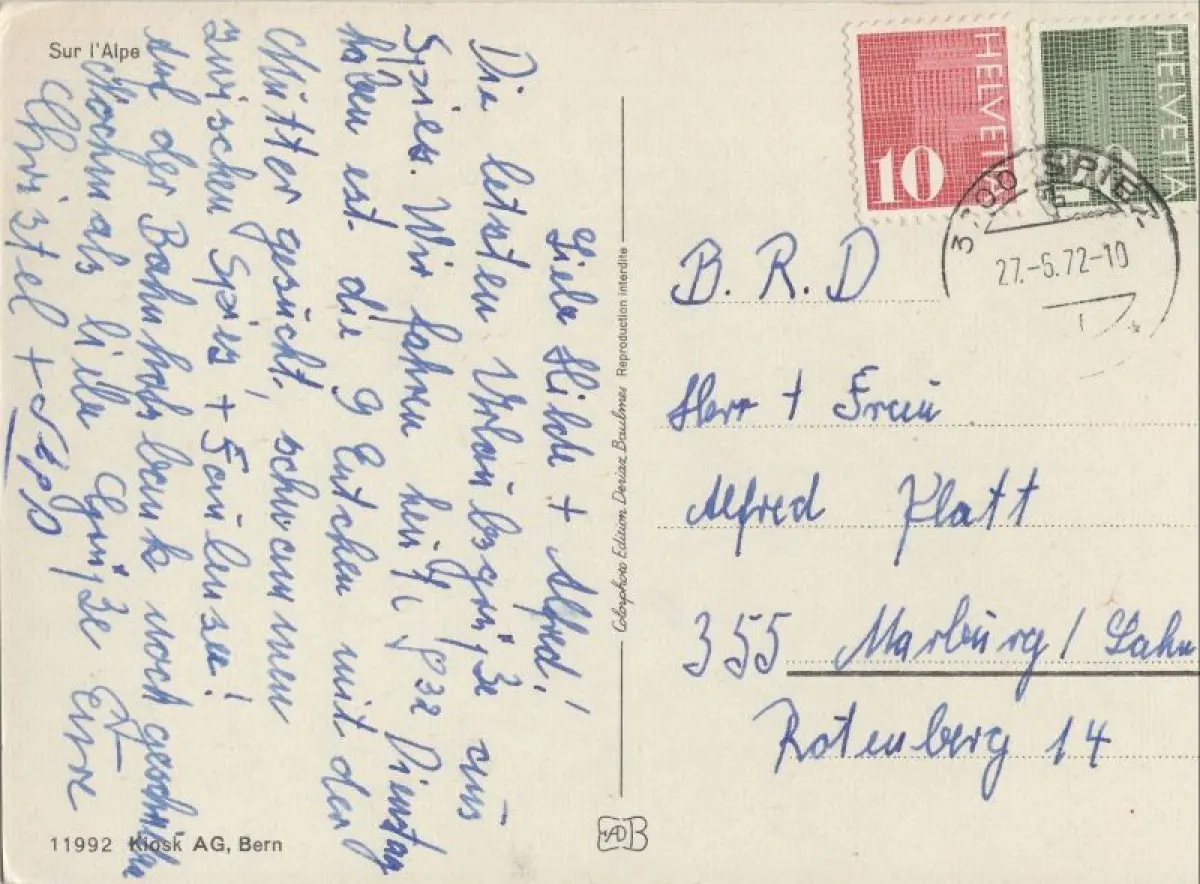 Sur l'Alpe
Liebe Hilde + Alfred!
Die letzten Urlaubsgrüße aus
Spiez. Wir fahren heute, Dienstag
haben erst die 9 Entchen mit der
Mutter gesucht, schwammen
zwischen Spiez + Faulensee!
auf der Bahnhofsbank noch geschrieben
Nochmals liebe Grüße Eure
Christel + Sepp
11992 Kiosk AG, Bern
Colorphoto Edition Deriaz Baulmes Reproduction interdite
HELVETIA
10
HELVETIA
SPIEZ
27.-6.72-10
B. R. D
Herr + Frau
Alfred Platt
355 Marburg/Lahn
Rotenberg 14